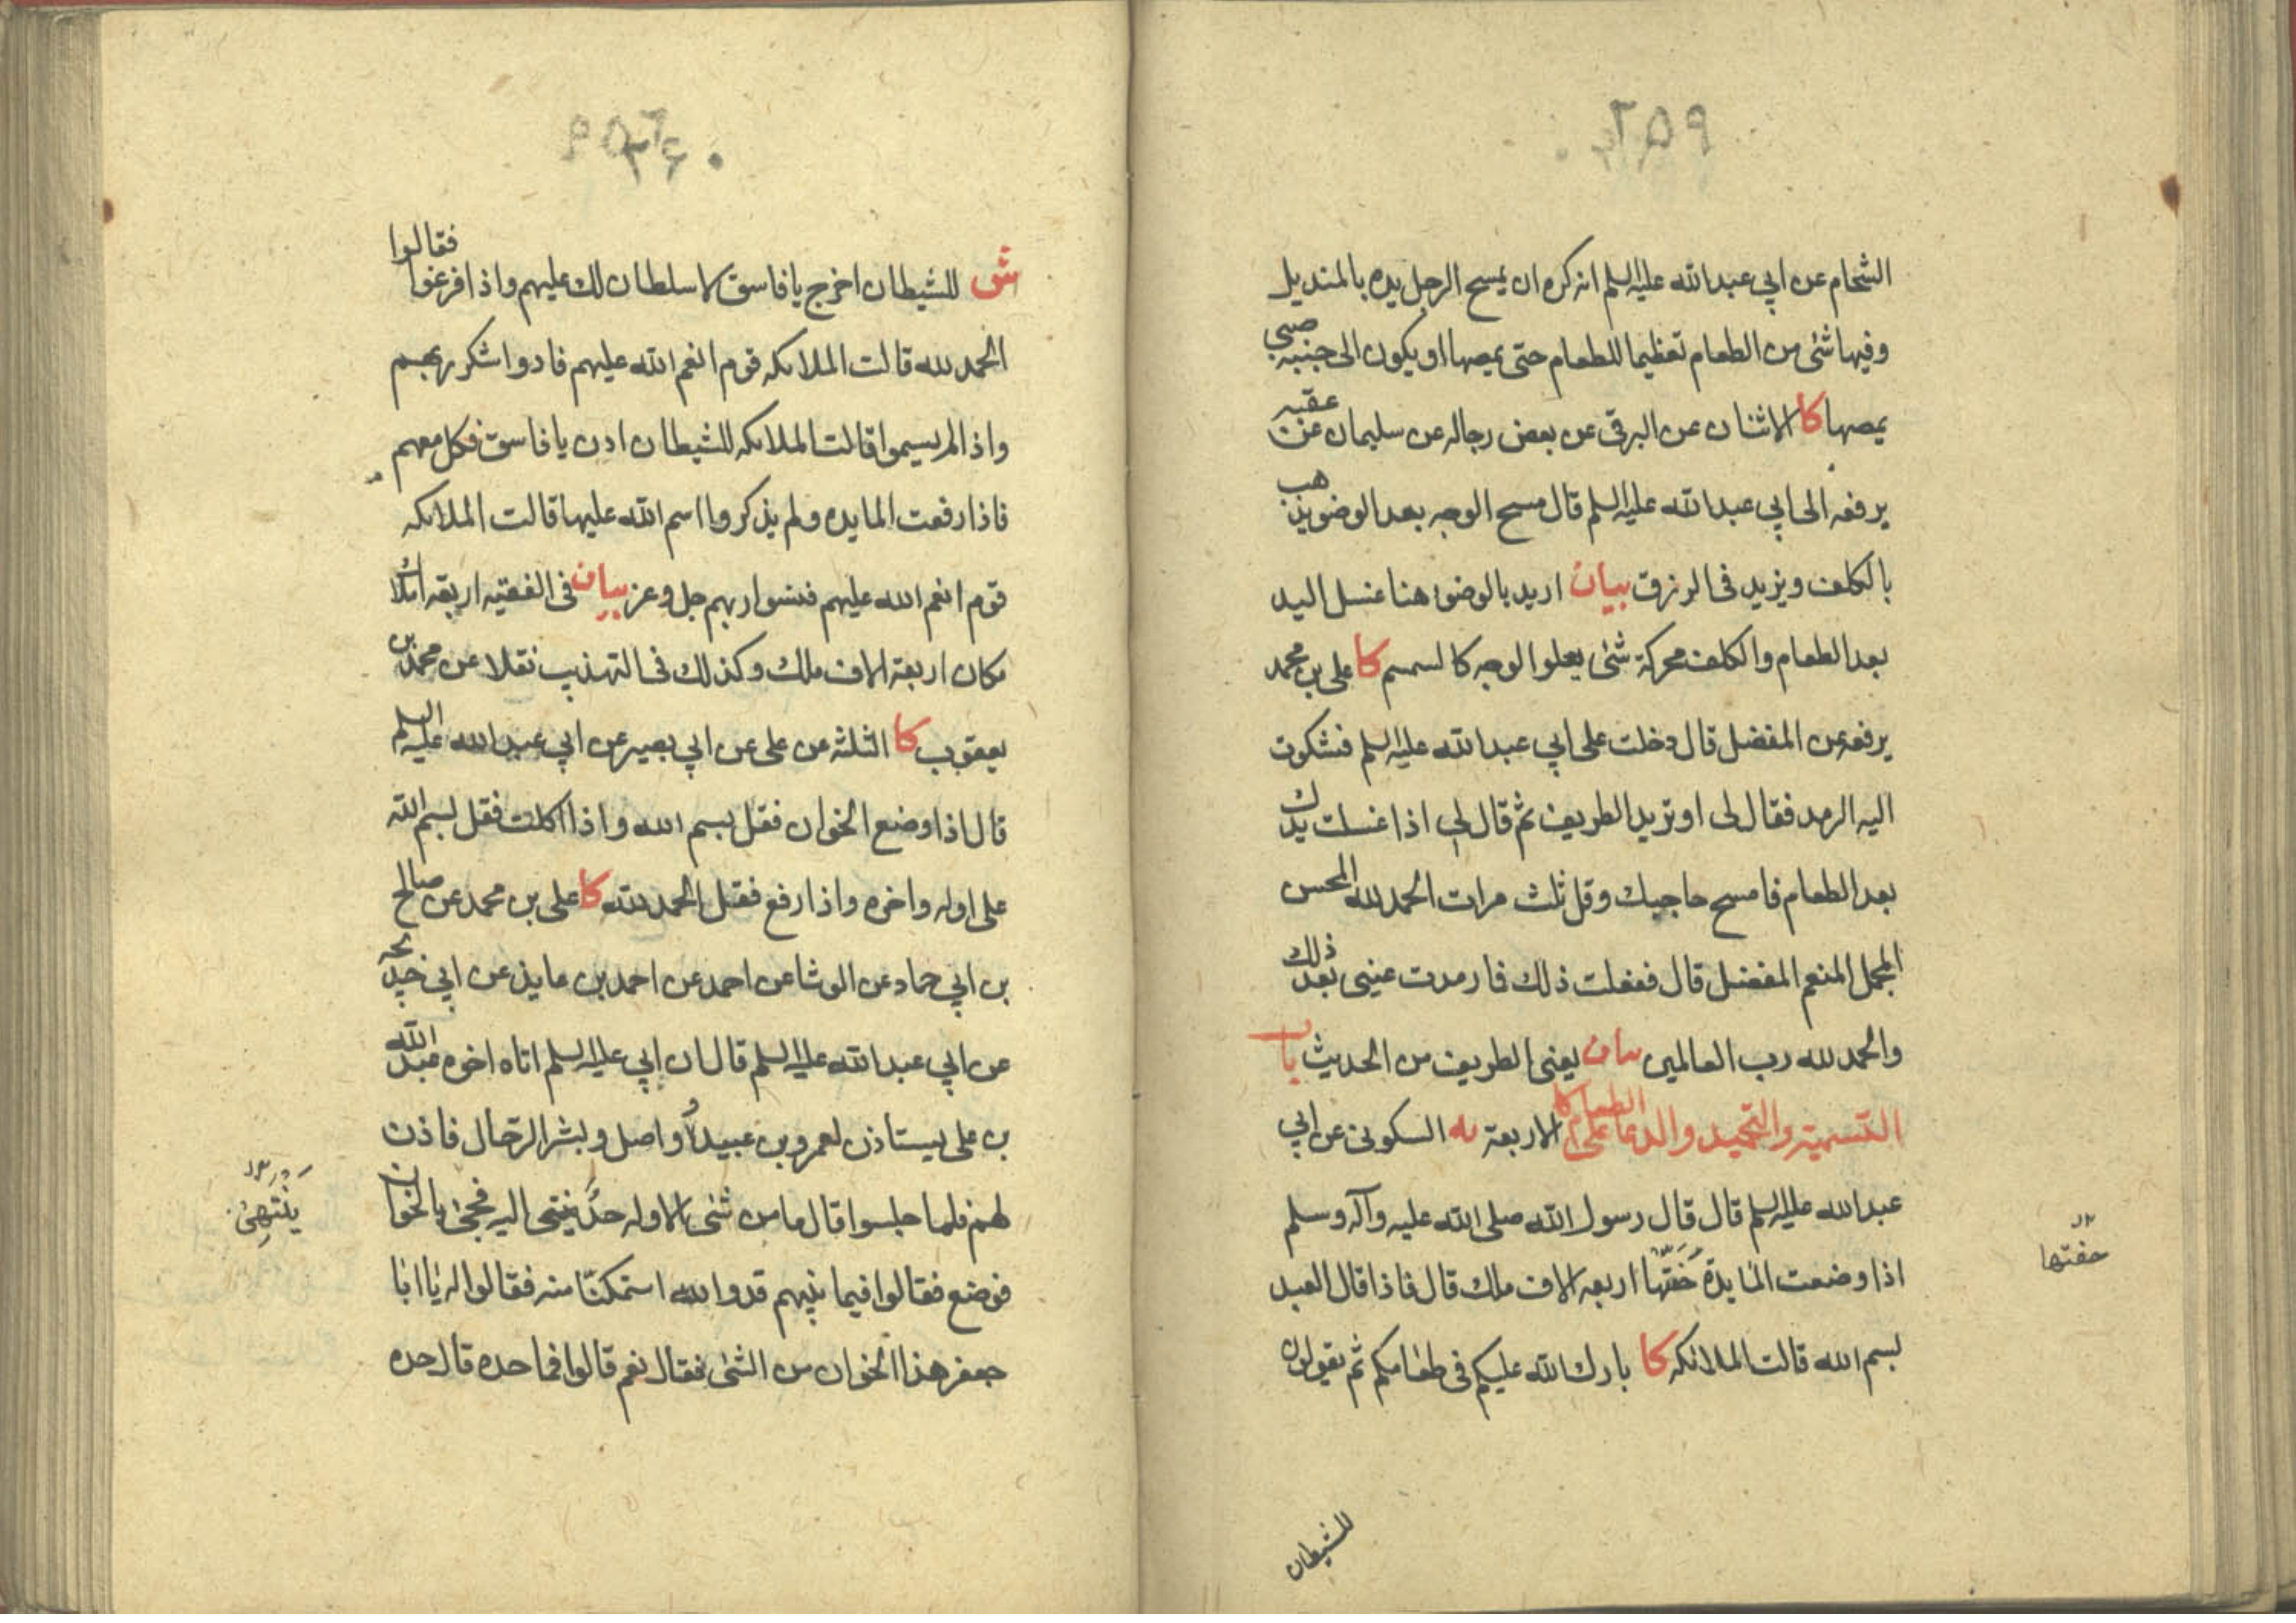 الشحام عن ابي عبد الله عليه السلم انه كره ان يمسح الرجل يده بالمنديل
وفيها شئ من الطعام تعظيما للطعام حتى يمصها او يكون الى جنبه صبي
يمصها كا الاثنان عن البرقي عن بعض رجاله عن سليمان عن عقبه
يرفعه الى ابي عبد الله عليه السلم قال مسح الوجه بعد الوضو يذهب
بالكلف ويزيد في الرزق بيان اريد بالوضوء هنا غسل اليد
بعد الطعام والكلف محركة شئ يعلو الوجه كالسمسم كا علي بن محمد
يرفعه عن المفضل قال دخلت على ابي عبد الله عليه السلم فشكوت
اليه الرمد فقال لي او تريد الطريف ثم قال لي اذا غسلت يدك
بعد الطعام فامسح حاجبيك وقل ثلث مرات الحمد لله المحسن
المجمل المنعم المفضل قال ففعلت ذلك فما رمدت عيني بعد ذلك
والحمد لله رب العالمين بيان يعني الطريف من الحديث باب
التسمية والتحميد والدعا على الطعام كا الاربعة يه السكوني عن ابي
عبد الله عليه السلم قال قال رسول الله صلى الله عليه وآله وسلم
اذا وضعت المايدة حَفَّتْها اربعه الاف ملك قال فاذا قال العبد
حفتها
بسم الله قالت الملائكه كا بارك الله عليكم في طعامكم ثم يقولون
للشيطان
ش للشيطان اخرج يا فاسق لا سلطان لك عليهم واذا فرغوا فقالوا
الحمد لله قالت الملائكه قوم انعم الله عليهم فادوا شكر ربهم
واذا لم يسموا قالت الملائكه للشيطان ادن يا فاسق فكل معهم
فاذا رفعت المايده ولم يذكروا اسم الله عليها قالت الملائكه
قوم انعم الله عليهم فنسوا ربهم جل وعز بيان في الفقيه اربعة املاك
مكان اربعة الاف ملك وكذلك في التهذيب نقلا عن محمد بن
يعقوب كا الثلثه عن علي عن ابي بصير عن ابي عبد الله عليه السلم
قال اذا وضع الخوان فقل بسم الله واذا اكلت فقل بسم الله
على اوله واخره واذا رفع فقل الحمد لله كا علي بن محمد عن صالح
بن ابي حماد عن الوشا عن احمد عن احمد بن عايذ عن ابي خديجه
عن ابي عبد الله عليه السلم قال ان ابي عليه السلم اتاه اخوه عبد الله
بن علي يستاذن لعمرو بن عبيد وواصل وبشر الرحال فاذن
لهم فلما جلسوا قال ما من شئ الا وله حدٌّ ينتهى اليه فجئ بالخوان
يَنْتَهِئ
فوضع فقالوا فيما بينهم قد والله استمكنّا منه فقالوا له يا ابا
جعفر هذا الخوان من الشئ فقال نعم قالوا فما حده قال حده